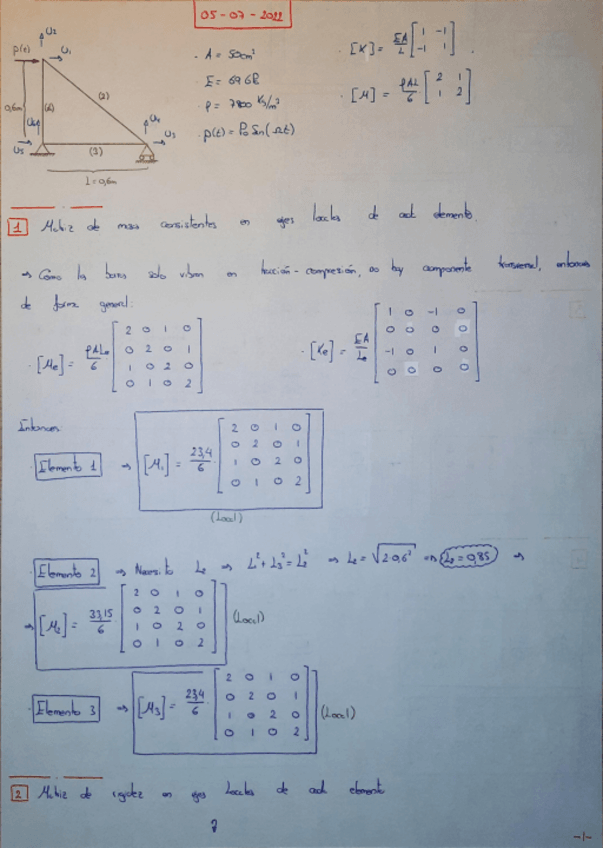 05-07-2022
U2
P(t)
U1
· A = 50cm²
· [K] = EA/L [1 -1; -1 1]
· E = 69 GPa
0,6m
(1)
(2)
· ρ = 7800 Kg/m³
· [M] = ρAL/6 [2 1; 1 2]
U6
U4
U5
U3
· p(t) = P0 Sen(Ωt)
(3)
L=0,6m
1 Matriz de masa consistentes en ejes locales de cada elemento.
⇒ Como las barras solo vibran en tracción-compresión, no hay componente transversal, entonces
de forma general:
· [Me] = ρALe/6 [2 0 1 0; 0 2 0 1; 1 0 2 0; 0 1 0 2]
· [Ke] = EA/Le [1 0 -1 0; 0 0 0 0; -1 0 1 0; 0 0 0 0]
Entonces:
· Elemento 1 ⇒ [M1] = 23,4/6 · [2 0 1 0; 0 2 0 1; 1 0 2 0; 0 1 0 2]
(Local)
· Elemento 2 ⇒ Necesito L2 ⇒ L² + L3² = L2² ⇒ L2 = √2·0,6² ⇒ L2 = 0,85 ⇒
⇒ [M2] = 33,15/6 · [2 0 1 0; 0 2 0 1; 1 0 2 0; 0 1 0 2] (Local)
· Elemento 3 ⇒ [M3] = 23,4/6 · [2 0 1 0; 0 2 0 1; 1 0 2 0; 0 1 0 2] (Local)
2 Matriz de rigidez en ejes locales de cada elemento
-1-